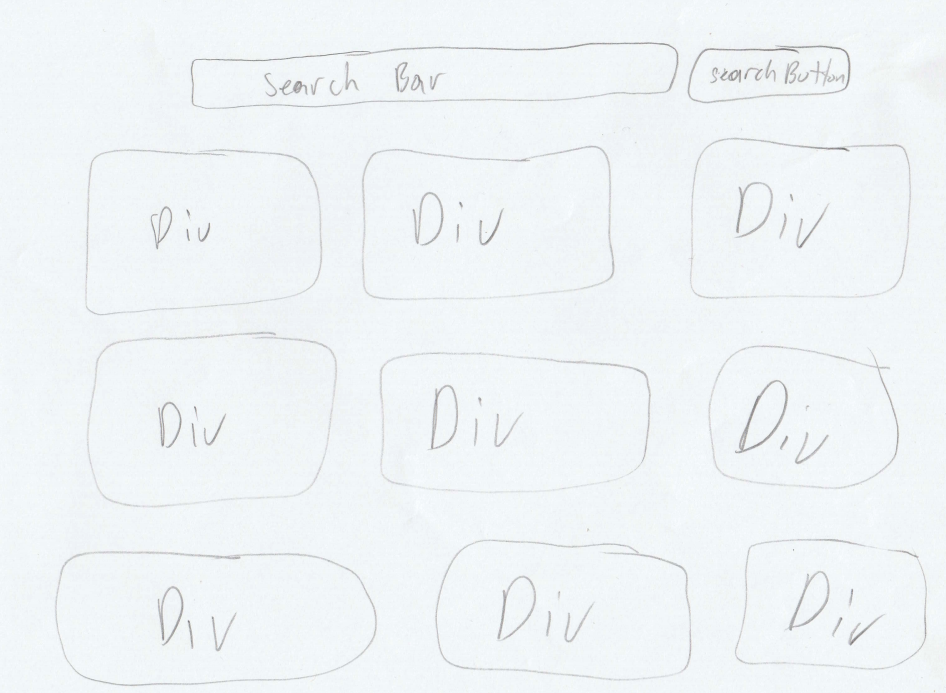 Search Bar
searchButton
Div
Div
Div
Div
Div
Div
Div
Div
Div